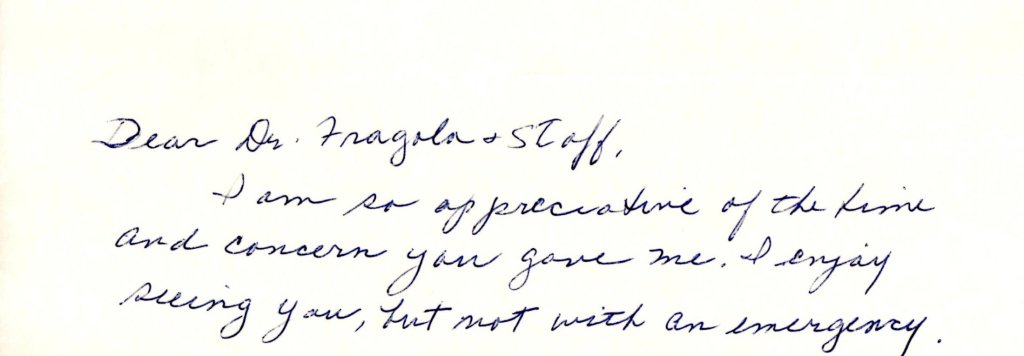 Dear Dr. Fragola + Staff,
I am so appreciative of the time
and concern you gave me. I enjoy
seeing you, but not with an emergency.